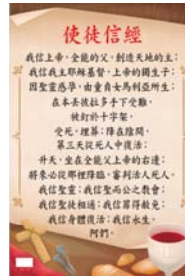 使徒信經
我信上帝，全能的父，創造天地的主；
我信我主耶穌基督，上帝的獨生子；
因聖靈感孕，由童貞女馬利亞所生；
在本丟彼拉多手下受難，
被釘於十字架，
受死，埋葬；降在陰間，
第三天從死人中復活；
升天，坐在全能父上帝的右邊；
將來必從那裡降臨，審判活人死人。
我信聖靈；我信聖而公之教會；
我信聖徒相通；我信罪得赦免；
我信身體復活；我信永生。
阿們。